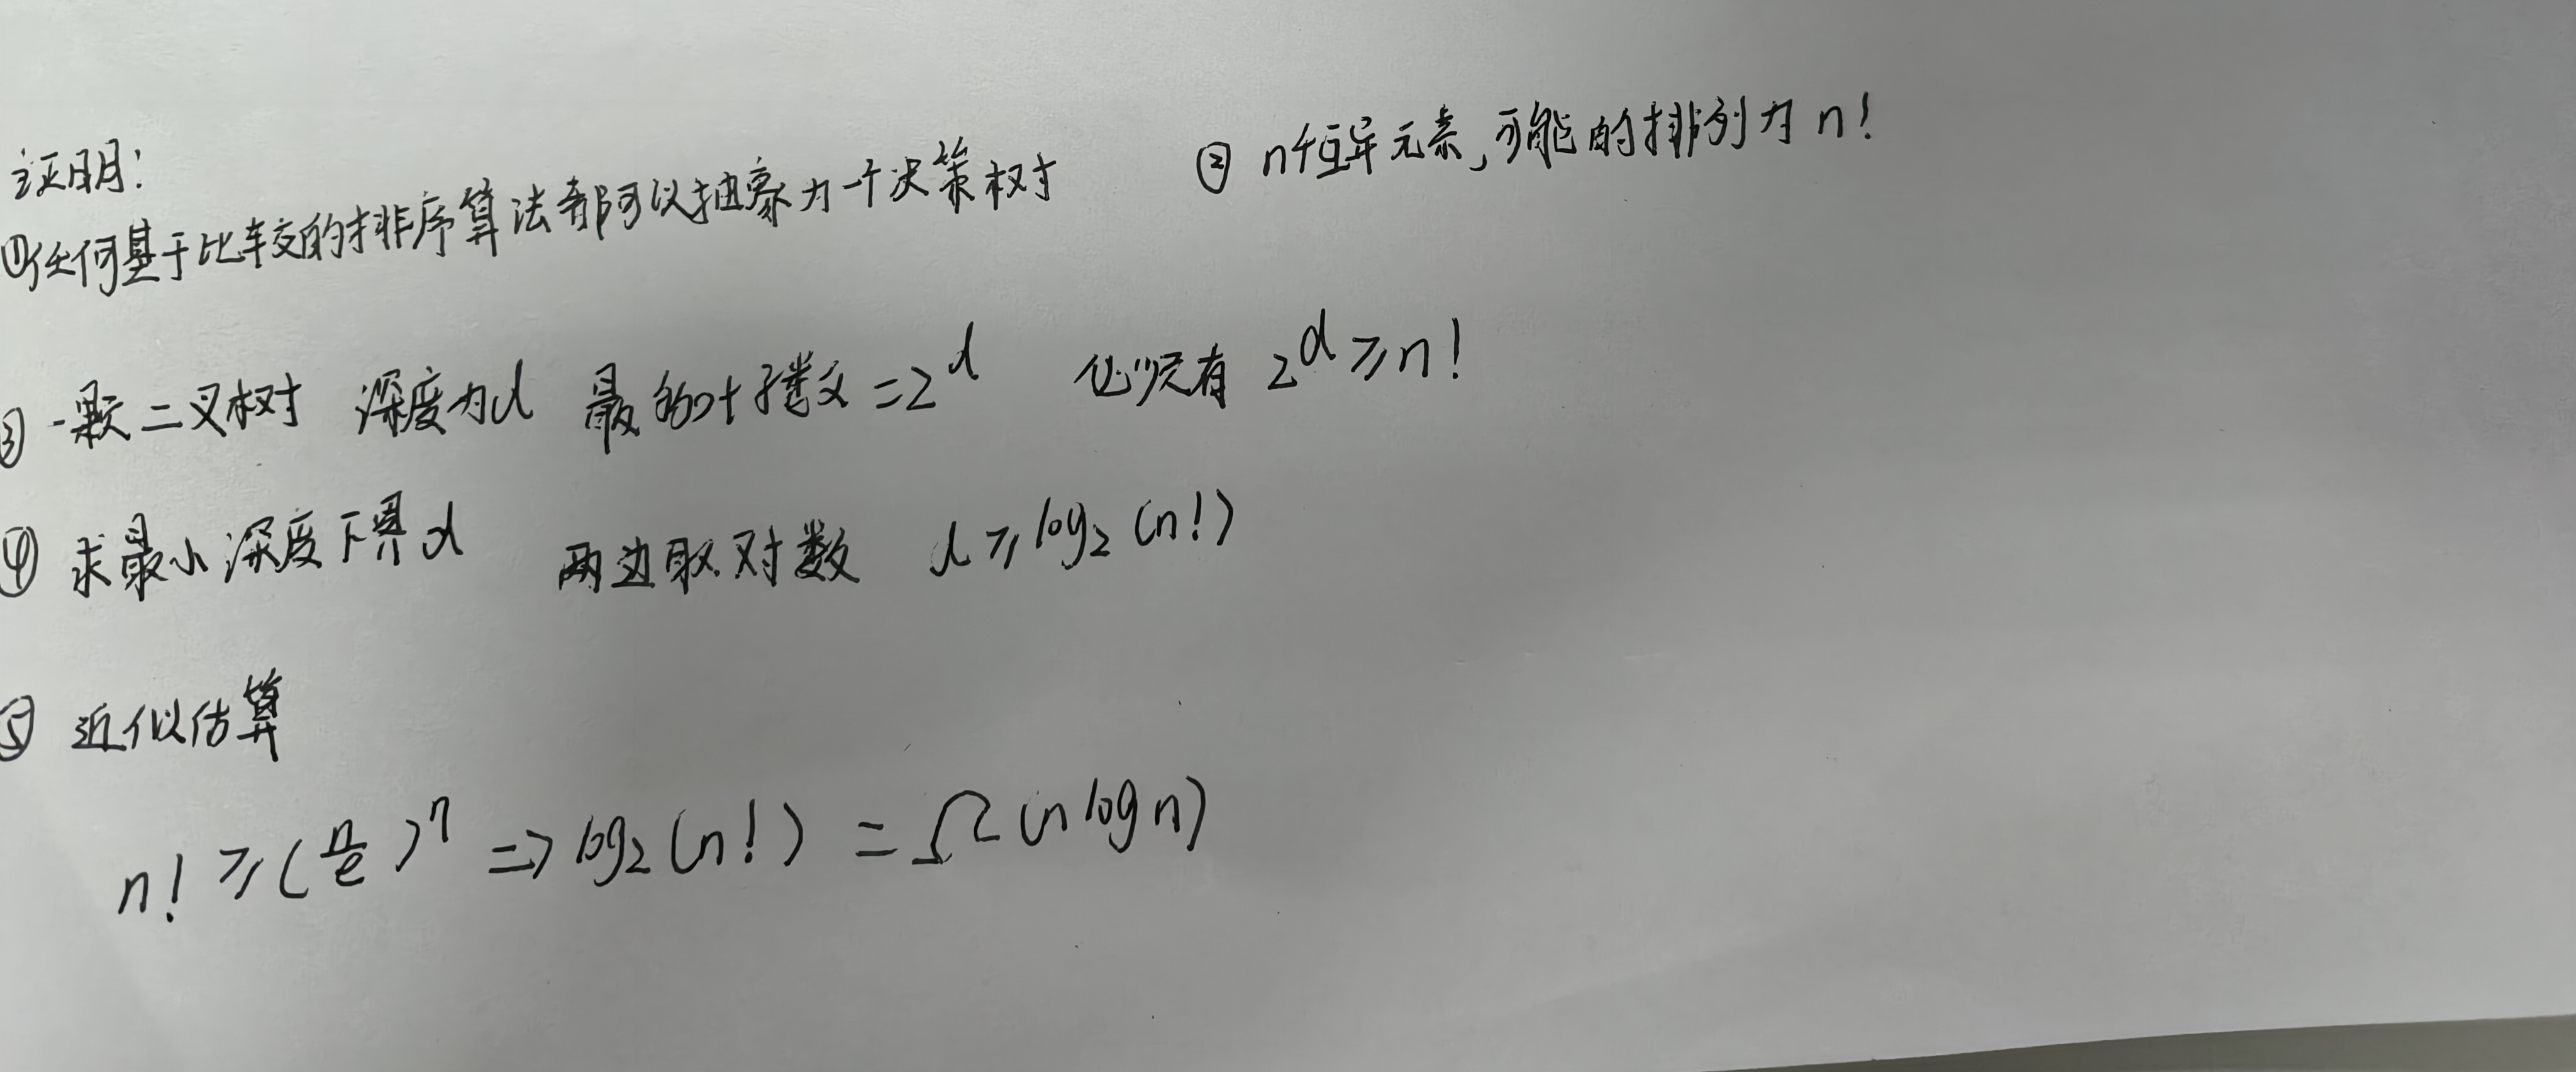 证明:
①任何基于比较的排序算法都可以抽象为一个决策树 ② n个互异元素,可能的排列为 n!
③ 一颗二叉树 深度为d 最多的叶子数 = 2^d 必须有 2^d ≥ n!
④ 求最小深度下界 d 两边取对数 d ≥ log₂ (n!)
⑤ 近似估算
n! ≥ (n/e)^n => log₂(n!) = Ω(n log n)